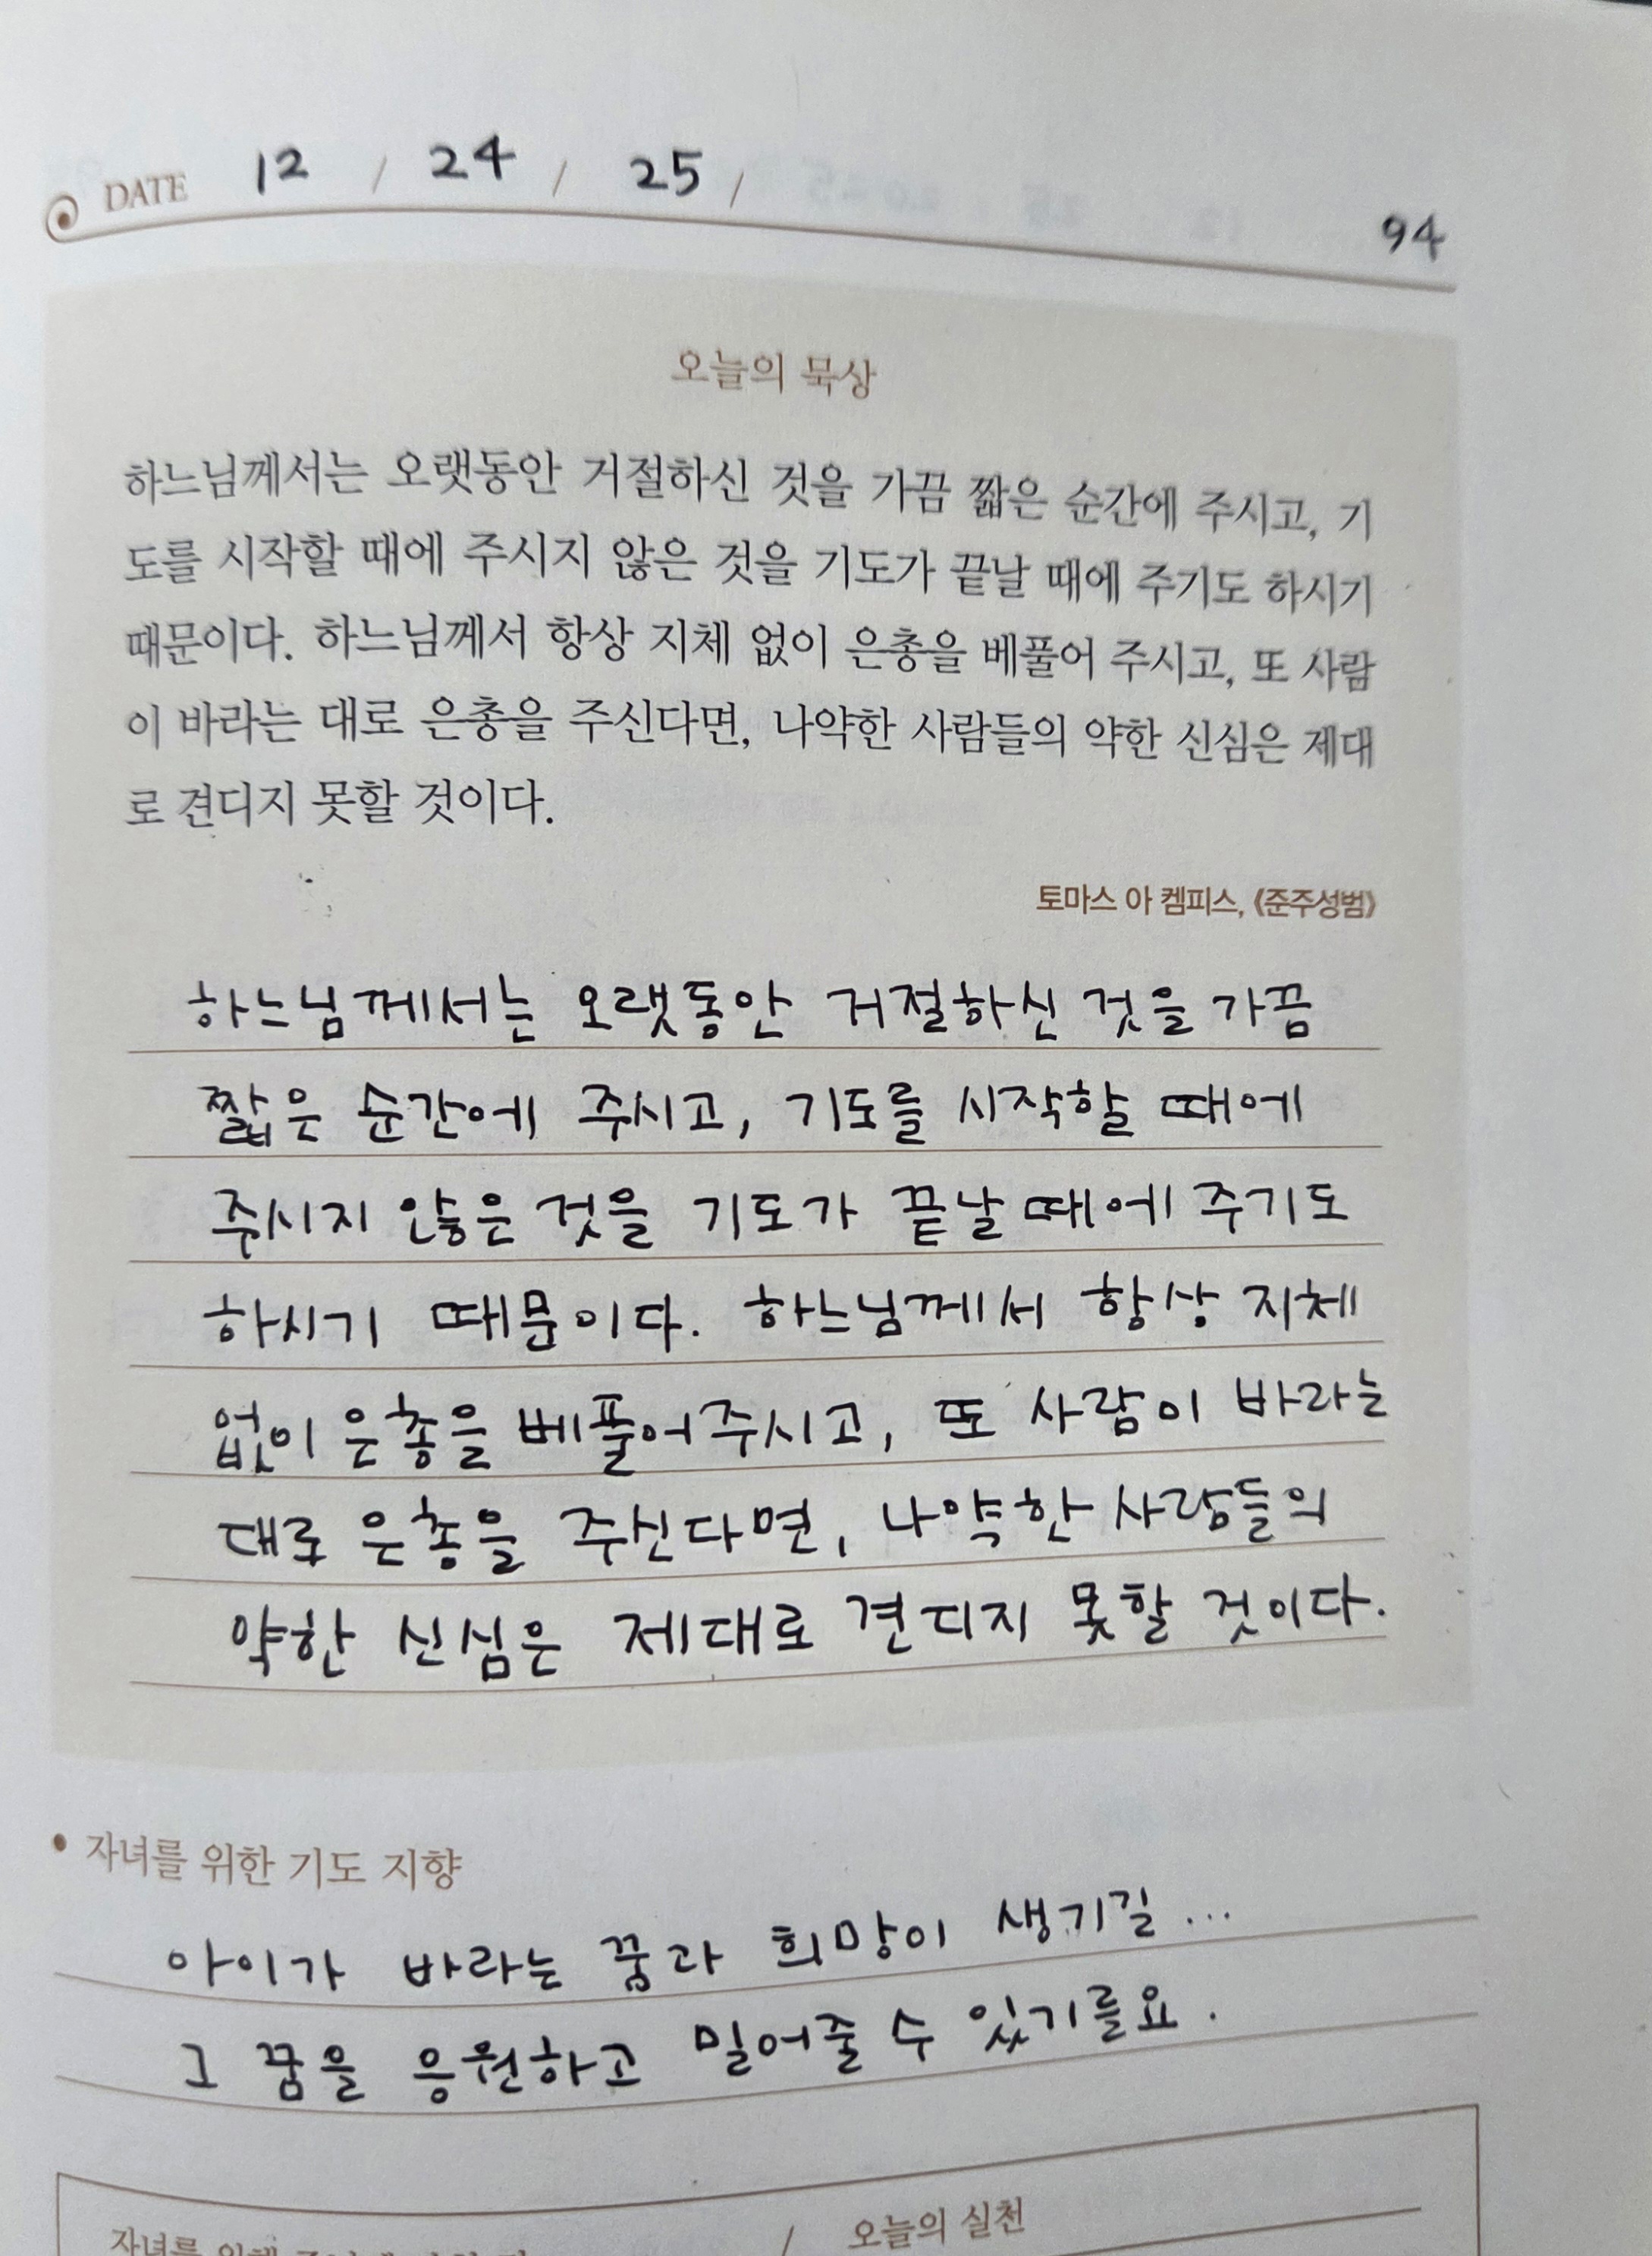 DATE 12 / 24 / 25 /
94
오늘의 묵상
하느님께서는 오랫동안 거절하신 것을 가끔 짧은 순간에 주시고, 기
도를 시작할 때에 주시지 않은 것을 기도가 끝날 때에 주기도 하시기
때문이다. 하느님께서 항상 지체 없이 은총을 베풀어 주시고, 또 사람
이 바라는 대로 은총을 주신다면, 나약한 사람들의 약한 신심은 제대
로 견디지 못할 것이다.
토마스 아 켐피스, 《준주성범》
하느님께서는 오랫동안 거절하신 것을 가끔
짧은 순간에 주시고, 기도를 시작할 때에
주시지 않은 것을 기도가 끝날 때에 주기도
하시기 때문이다. 하느님께서 항상 지체
없이 은총을 베풀어 주시고, 또 사람이 바라는
대로 은총을 주신다면, 나약한 사람들의
약한 신심은 제대로 견디지 못할 것이다.
• 자녀를 위한 기도 지향
아이가 바라는 꿈과 희망이 생기길...
그 꿈을 응원하고 밀어줄 수 있기를요.
자녀를 / 오늘의 실천